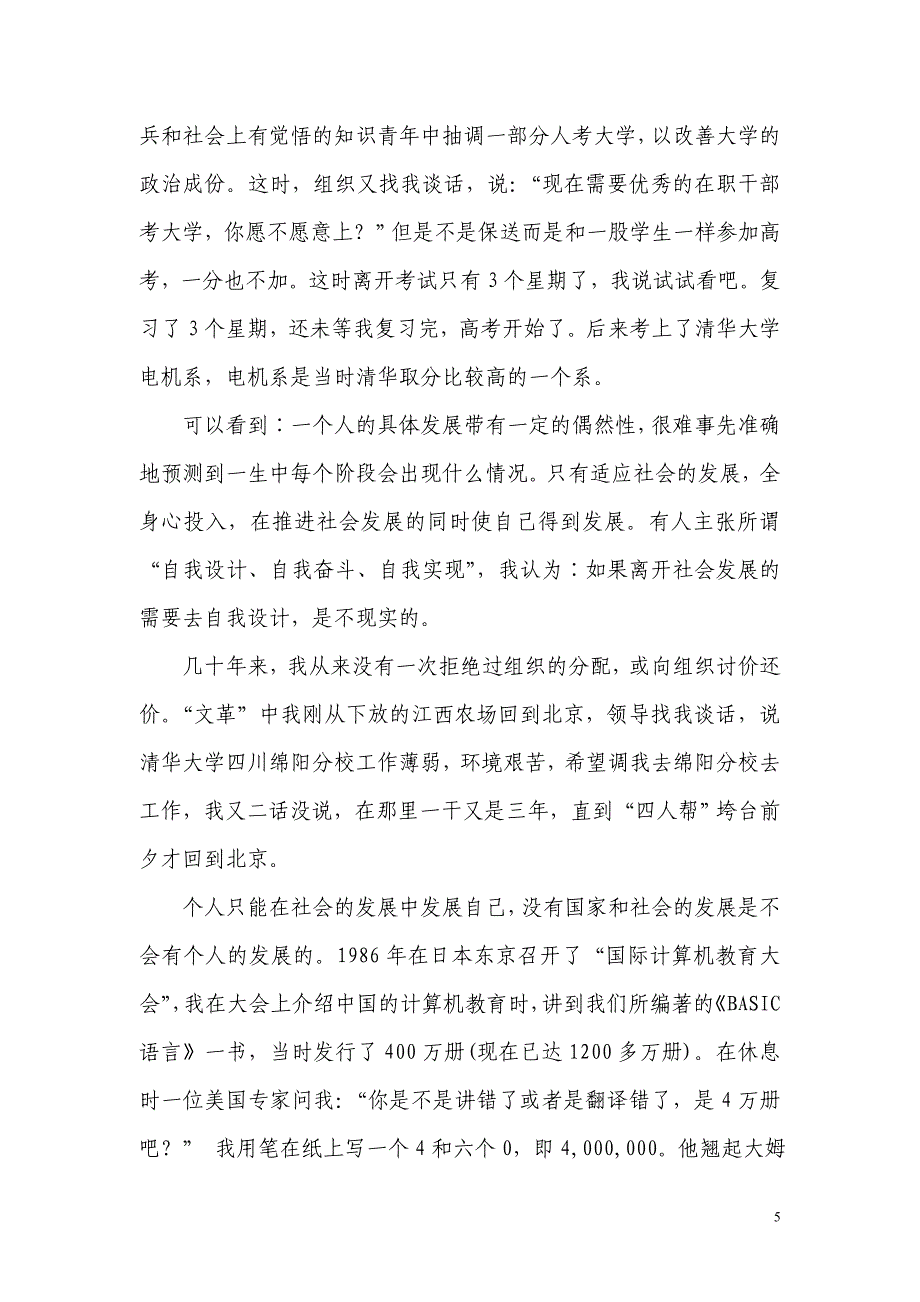 兵和社会上有觉悟的知识青年中抽调一部分人考大学，以改善大学的
政治成份。这时，组织又找我谈话，说：“现在需要优秀的在职干部
考大学，你愿不愿意上？”但是不是保送而是和一股学生一样参加高
考，一分也不加。这时离开考试只有 3 个星期了，我说试试看吧。复
习了 3 个星期，还未等我复习完，高考开始了。后来考上了清华大学
电机系，电机系是当时清华取分比较高的一个系。
可以看到：一个人的具体发展带有一定的偶然性，很难事先准确
地预测到一生中每个阶段会出现什么情况。只有适应社会的发展，全
身心投入，在推进社会发展的同时使自己得到发展。有人主张所谓
“自我设计、自我奋斗、自我实现”，我认为：如果离开社会发展的
需要去自我设计，是不现实的。
几十年来，我从来没有一次拒绝过组织的分配，或向组织讨价还
价。“文革”中我刚从下放的江西农场回到北京，领导找我谈话，说
清华大学四川绵阳分校工作薄弱，环境艰苦，希望调我去绵阳分校去
工作，我又二话没说，在那里一干又是三年，直到“四人帮”垮台前
夕才回到北京。
个人只能在社会的发展中发展自己，没有国家和社会的发展是不
会有个人的发展的。1986 年在日本东京召开了“国际计算机教育大
会”，我在大会上介绍中国的计算机教育时，讲到我们所编著的《BASIC
语言》一书，当时发行了 400 万册(现在已达 1200 多万册)。在休息
时一位美国专家问我：“你是不是讲错了或者是翻译错了，是 4 万册
吧？” 我用笔在纸上写一个 4 和六个 0，即 4,000,000。他翘起大姆
5